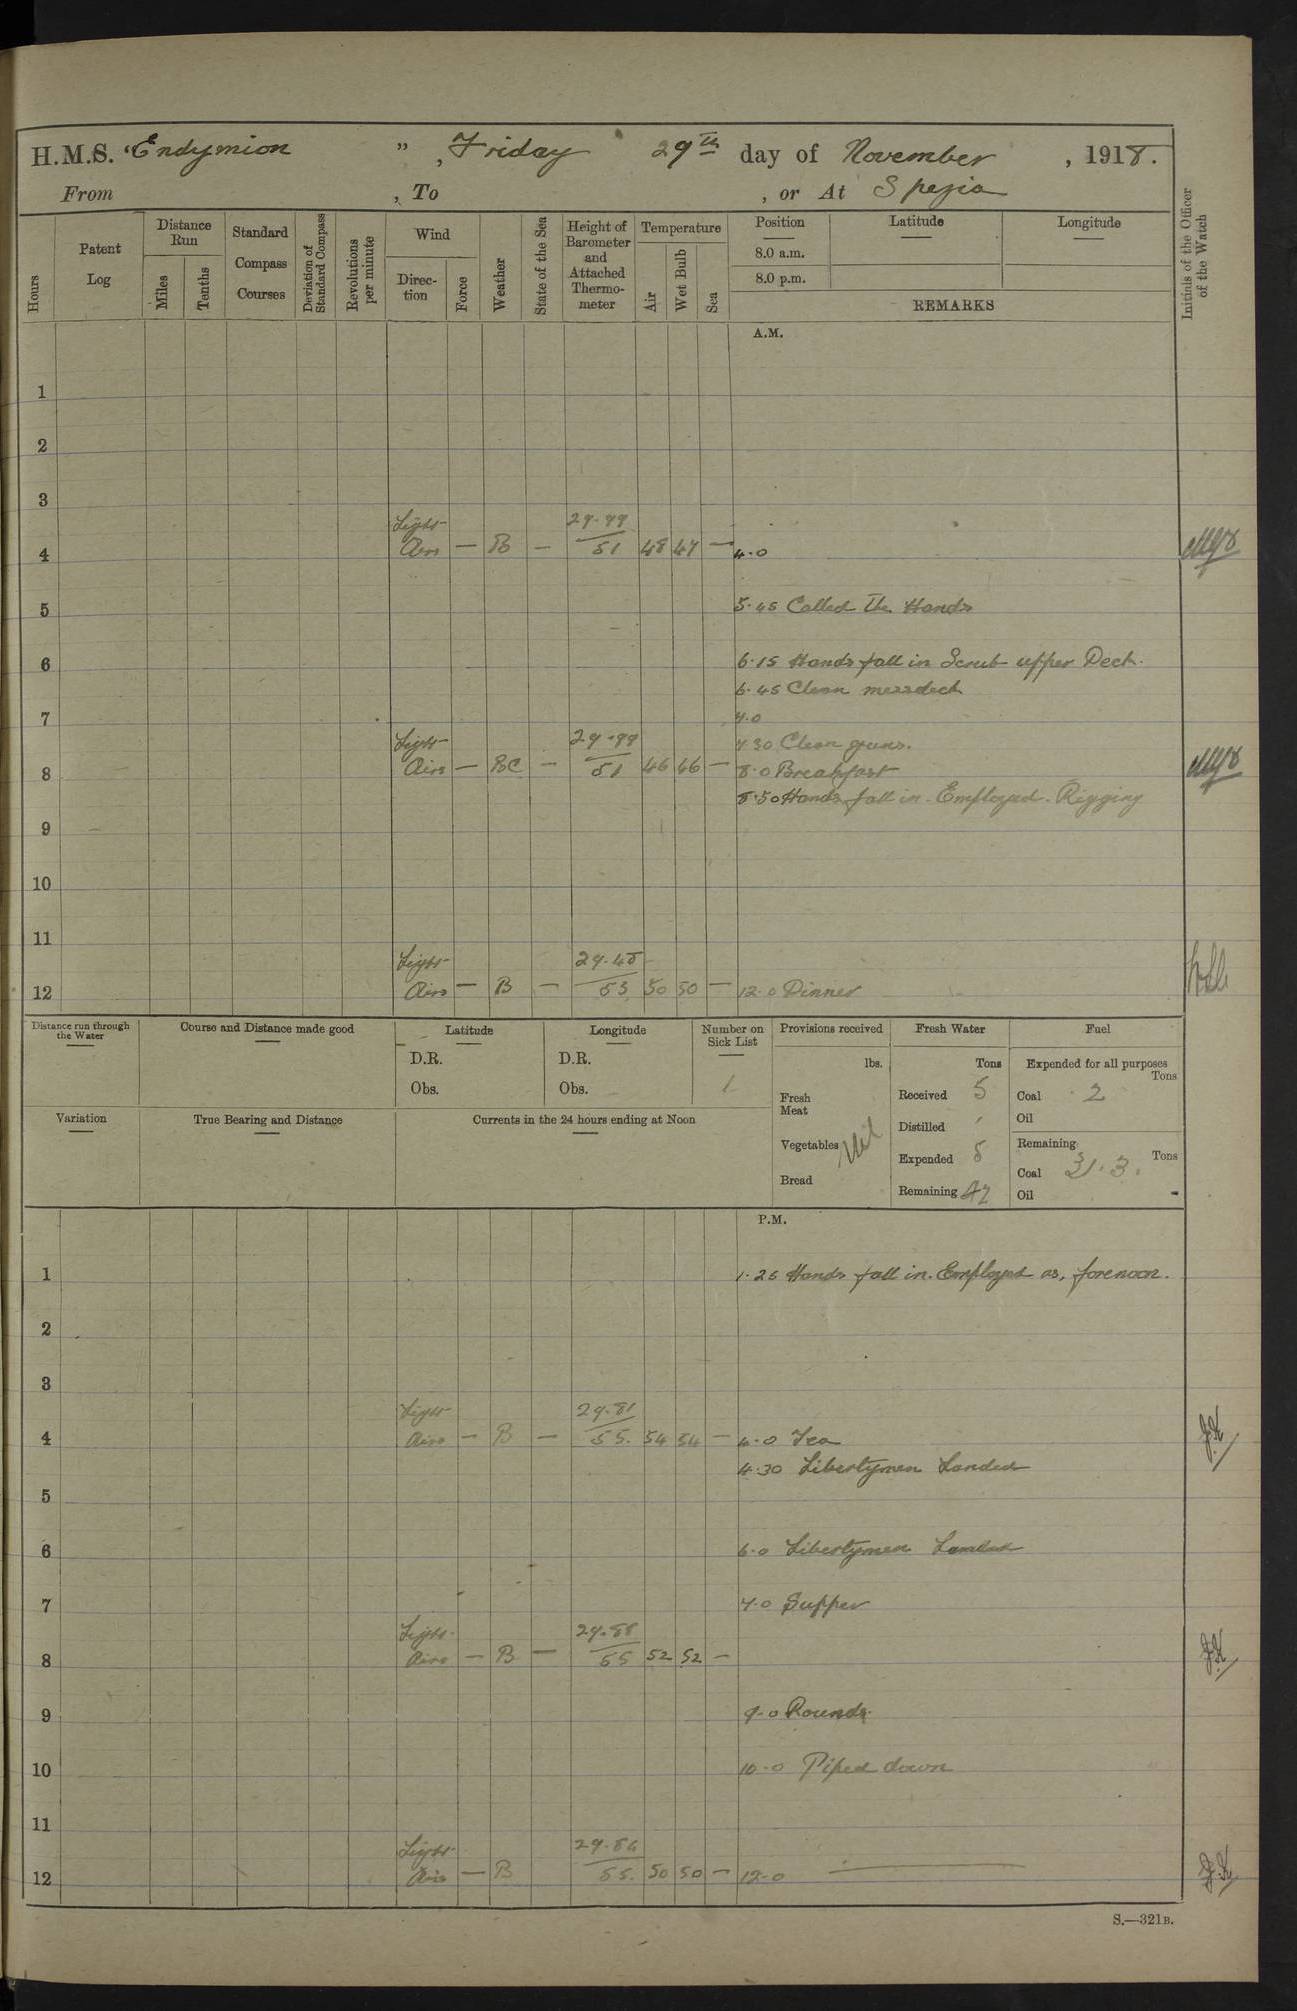 H.M.S. "Endymion", Friday 29th day of November, 1918.
From , To , or At Spezia
Hours
Patent Log
Distance Run
Miles
Tenths
Standard Compass Courses
Deviation of Standard Compass
Revolutions per minute
Wind
Direction
Force
Weather
State of the Sea
Height of Barometer and Attached Thermometer
Temperature
Air
Wet Bulb
Sea
Position
8.0 a.m.
8.0 p.m.
Latitude
Longitude
REMARKS
Initials of the Officer of the Watch
A.M.
1
2
3
Light
4 Airs — B — 51 48 47 — 4.0
5 5.45 Called the Hands
6 6.15 Hands fall in Scrub upper Deck.
6.45 Clean messdeck
7 7.0
Light 7.30 Clean guns.
8 Airs — BC — 51 46 46 — 8.0 Breakfast
8.50 Hands fall in. Employed. Rigging
9
10
11
Light
12 Airs — B — 53 50 50 — 12.0 Dinner
Distance run through the Water
Course and Distance made good
Latitude
D.R.
Obs.
Longitude
D.R.
Obs.
Number on Sick List
1
Provisions received
lbs.
Fresh Meat
Vegetables
Nil
Bread
Fresh Water
Tons
Received 5
Distilled
Expended 5
Remaining 47
Fuel
Expended for all purposes
Tons
Coal 2
Oil
Remaining
Tons
Coal 313.
Oil -
Variation
True Bearing and Distance
Currents in the 24 hours ending at Noon
P.M.
1 1.25 Hands fall in. Employed as, forenoon.
2
3
Light 29.81
4 Airs — B — 55. 54 54 — 4.0 Tea
4.30 Libertymen Landed
5
6 6.0 Libertymen Landed
7 7.0 Supper
Light 29.88
8 Airs — B — 55 52 52 — JK
9 9.0 Rounds.
10 10.0 Piped down
11
Light
12 Airs — B 55. 50 50 — 12.0 JK
S.—321B.